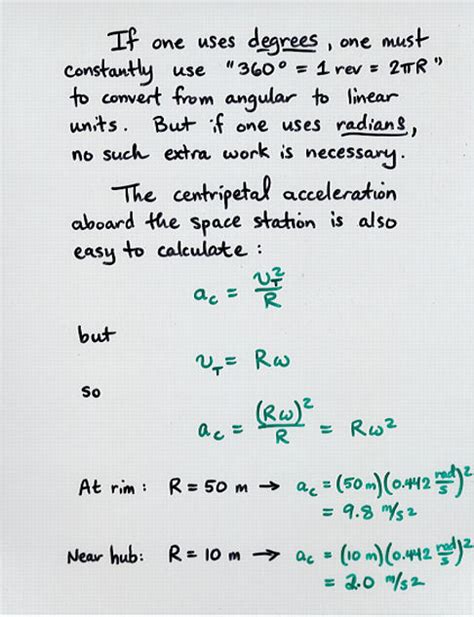 If one uses degrees, one must
constantly use "360° = 1 rev = 2πR"
to convert from angular to linear
units. But if one uses radians,
no such extra work is necessary.
The centripetal acceleration
aboard the space station is also
easy to calculate :
a_c = v_T^2 / R
but
v_T = Rω
so
a_c = (Rω)^2 / R = Rω^2
At rim : R = 50 m → a_c = (50 m)(0.442 rad/s)^2
= 9.8 m/s^2
Near hub: R = 10 m → a_c = (10 m)(0.442 rad/s)^2
= 2.0 m/s^2